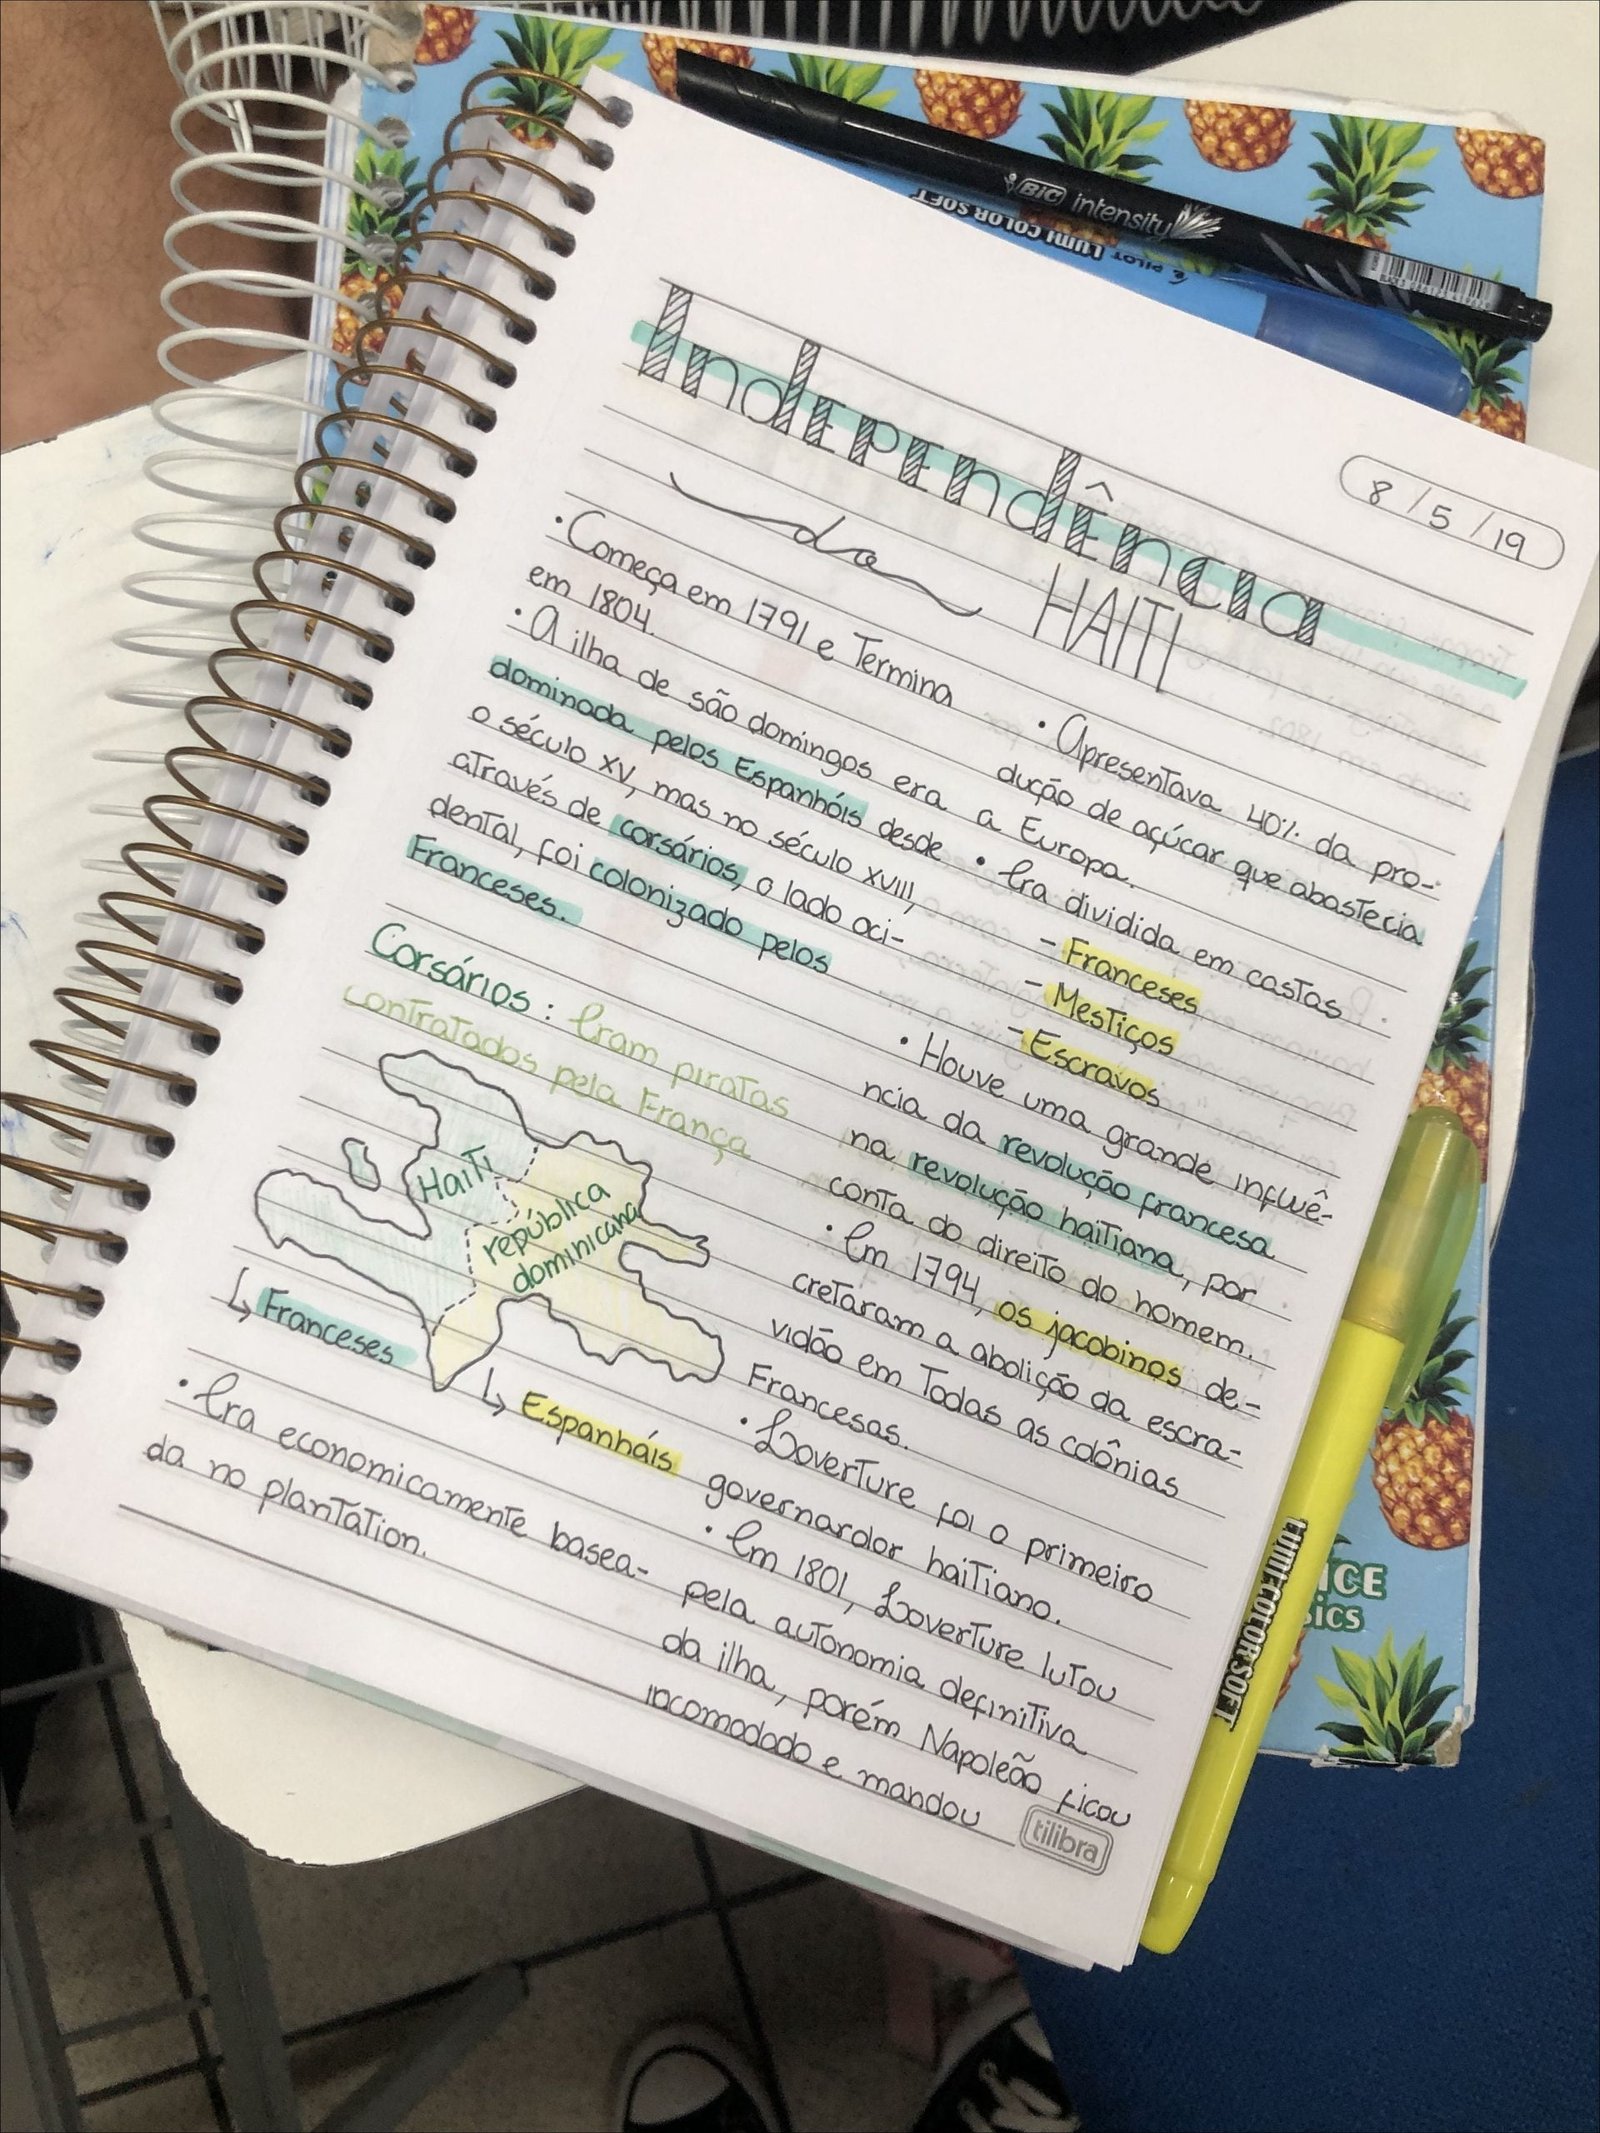 BIC intensity
PILOT LUMI COLOR SOFT
8/5/19
Independência
do HAITI
• Começa em 1791 e Termina
em 1804.
• A ilha de são domingos era
dominada pelos Espanhóis desde
o século XV, mas no século XVIII,
através de corsários, o lado oci-
dental, foi colonizado pelos
Franceses.
Corsários: Eram piratas
contratados pela França
Haiti
república
dominicana
↳ Franceses
↳ Espanháis
• Era economicamente basea-
da no plantation.
• Apresentava 40% da pro-
dução de açúcar que abastecia
a Europa.
• Era dividida em castas
- Franceses
- Mestiços
- Escravos
• Houve uma grande influê-
ncia da revolução francesa
na revolução haitiana, por
conta do direito do homem.
• Em 1794, os jacobinos de-
cretaram a abolição da escra-
vidão em Todas as colônias
Francesas.
• Loverture foi o primeiro
governardor haitiano.
• Em 1801, Loverture lutou
pela autonomia definitiva
da ilha, porém Napoleão ficou
incomodado e mandou
tilibra
LUMI COLOR SOFT